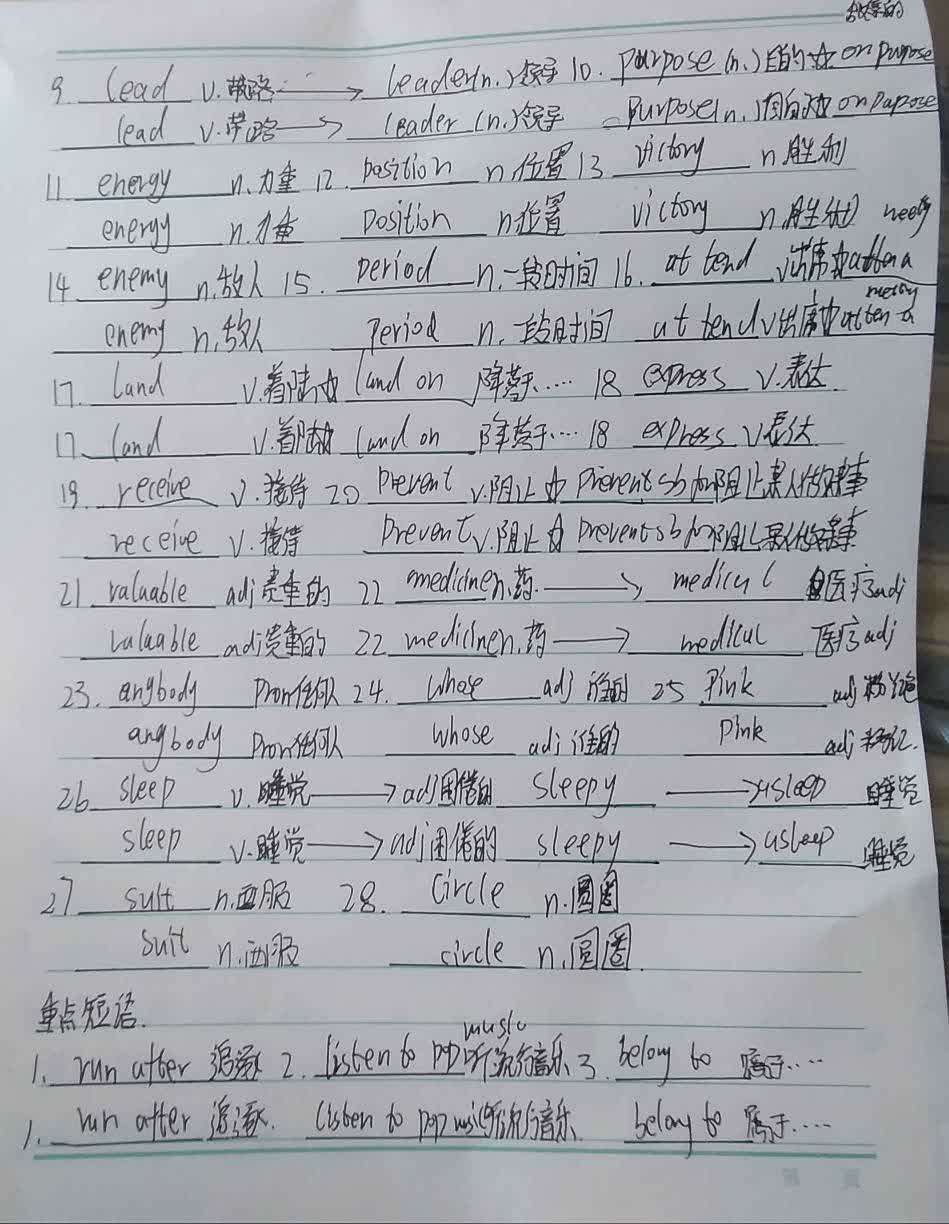 9. lead v.带路 → leader(n.)领导 10. purpose (n.)目的 on purpose
lead v.带路 → leader (n.)领导 purpose(n.)目的 on papose
11. energy n.力量 12. position n.位置 13 victory n.胜利
energy n.力量 position n.位置 victory n.胜利
14. enemy n.敌人 15. period n.一段时间 16. attend v出席 atten a meeting
enemy n.敌人 period n.一段时间 attend v出席 atten a meeting
17. land v.着陆 land on 降落于…… 18 express v.表达
17. land v.着陆 land on 降落于… 18 express v表达
19. receive v.接待 20 prevent v.阻止 prevent sb 阻止某人做某事
receive v.接待 prevent v.阻止 prevent sb 阻止某人做某事
21 valuable adj贵重的 22 medicine n.药 → medical 医疗adj
valuable adj贵重的 22 medicine n.药 → medical 医疗adj
23. angbody pron任何人 24. whose adj 谁的 25 pink adj 粉红色
angbody pron任何人 whose adj 谁的 pink adj 粉红.
26 sleep v.睡觉 → adj困倦的 sleepy → asleep 睡觉
sleep v.睡觉 → adj困倦的 sleepy → asleep 睡觉
27 suit n.西服 28. circle n.圆圈
suit n.西服 circle n.圆圈.
重点短语.
1. run after 追逐 2. listen to pop music 听流行音乐 3. belong to 属于…
1. run after 追逐. listen to pop music听流行音乐. belong to 属于……